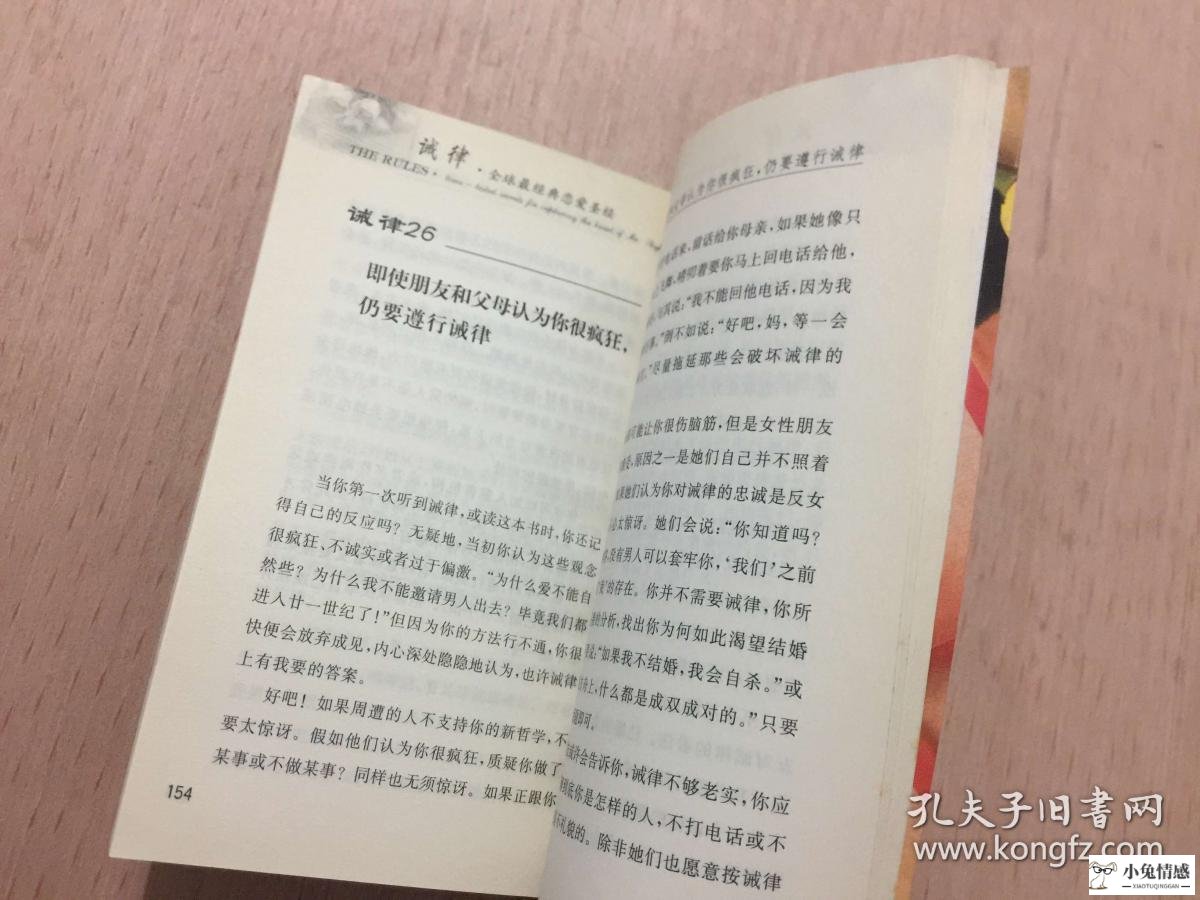 诫律·全球最经典恋爱圣经
THE RULES·
诫律26
即使朋友和父母认为你很疯狂，
仍要遵行诫律
当你第一次听到诫律，或读这本书时，你还记
得自己的反应吗？无疑地，当初你认为这些观念
很疯狂、不诚实或者过于偏激。“为什么爱不能自
然些？为什么我不能邀请男人出去？毕竟我们都
进入廿一世纪了！”但因为你的方法行不通，你很
快便会放弃成见，内心深处隐隐地认为，也许诫律
上有我要的答案。
好吧！如果周遭的人不支持你的新哲学，不
要太惊讶。假如他们认为你很疯狂，质疑你做了
某事或不做某事？同样也无须惊讶。如果正跟你
154
认为你很疯狂，仍要遵行诫律
电话来，留话给你母亲，如果她像只
唠叨着要你马上回电话给他，
说：“我不能回他电话，因为我
倒不如说：“好吧，妈，等一会
”尽量拖延那些会破坏诫律的
可能让你很伤脑筋，但是女性朋友
原因之一是她们自己并不照着
她们认为你对诫律的忠诚是反女
太惊讶。她们会说：“你知道吗？
没有男人可以套牢你，‘我们’之前
的存在。你并不需要诫律，你所
分析，找出你为何如此渴望结婚
“如果我不结婚，我会自杀。”或
上，什么都是成双成对的。”只要
即可。
或许会告诉你，诫律不够老实，你应
到底你是怎样的人，不打电话或不
不礼貌的。除非她们也愿意按诫律
孔夫子旧书网
www.kongfz.com
小兔情感
XIAOTUQINGGAN